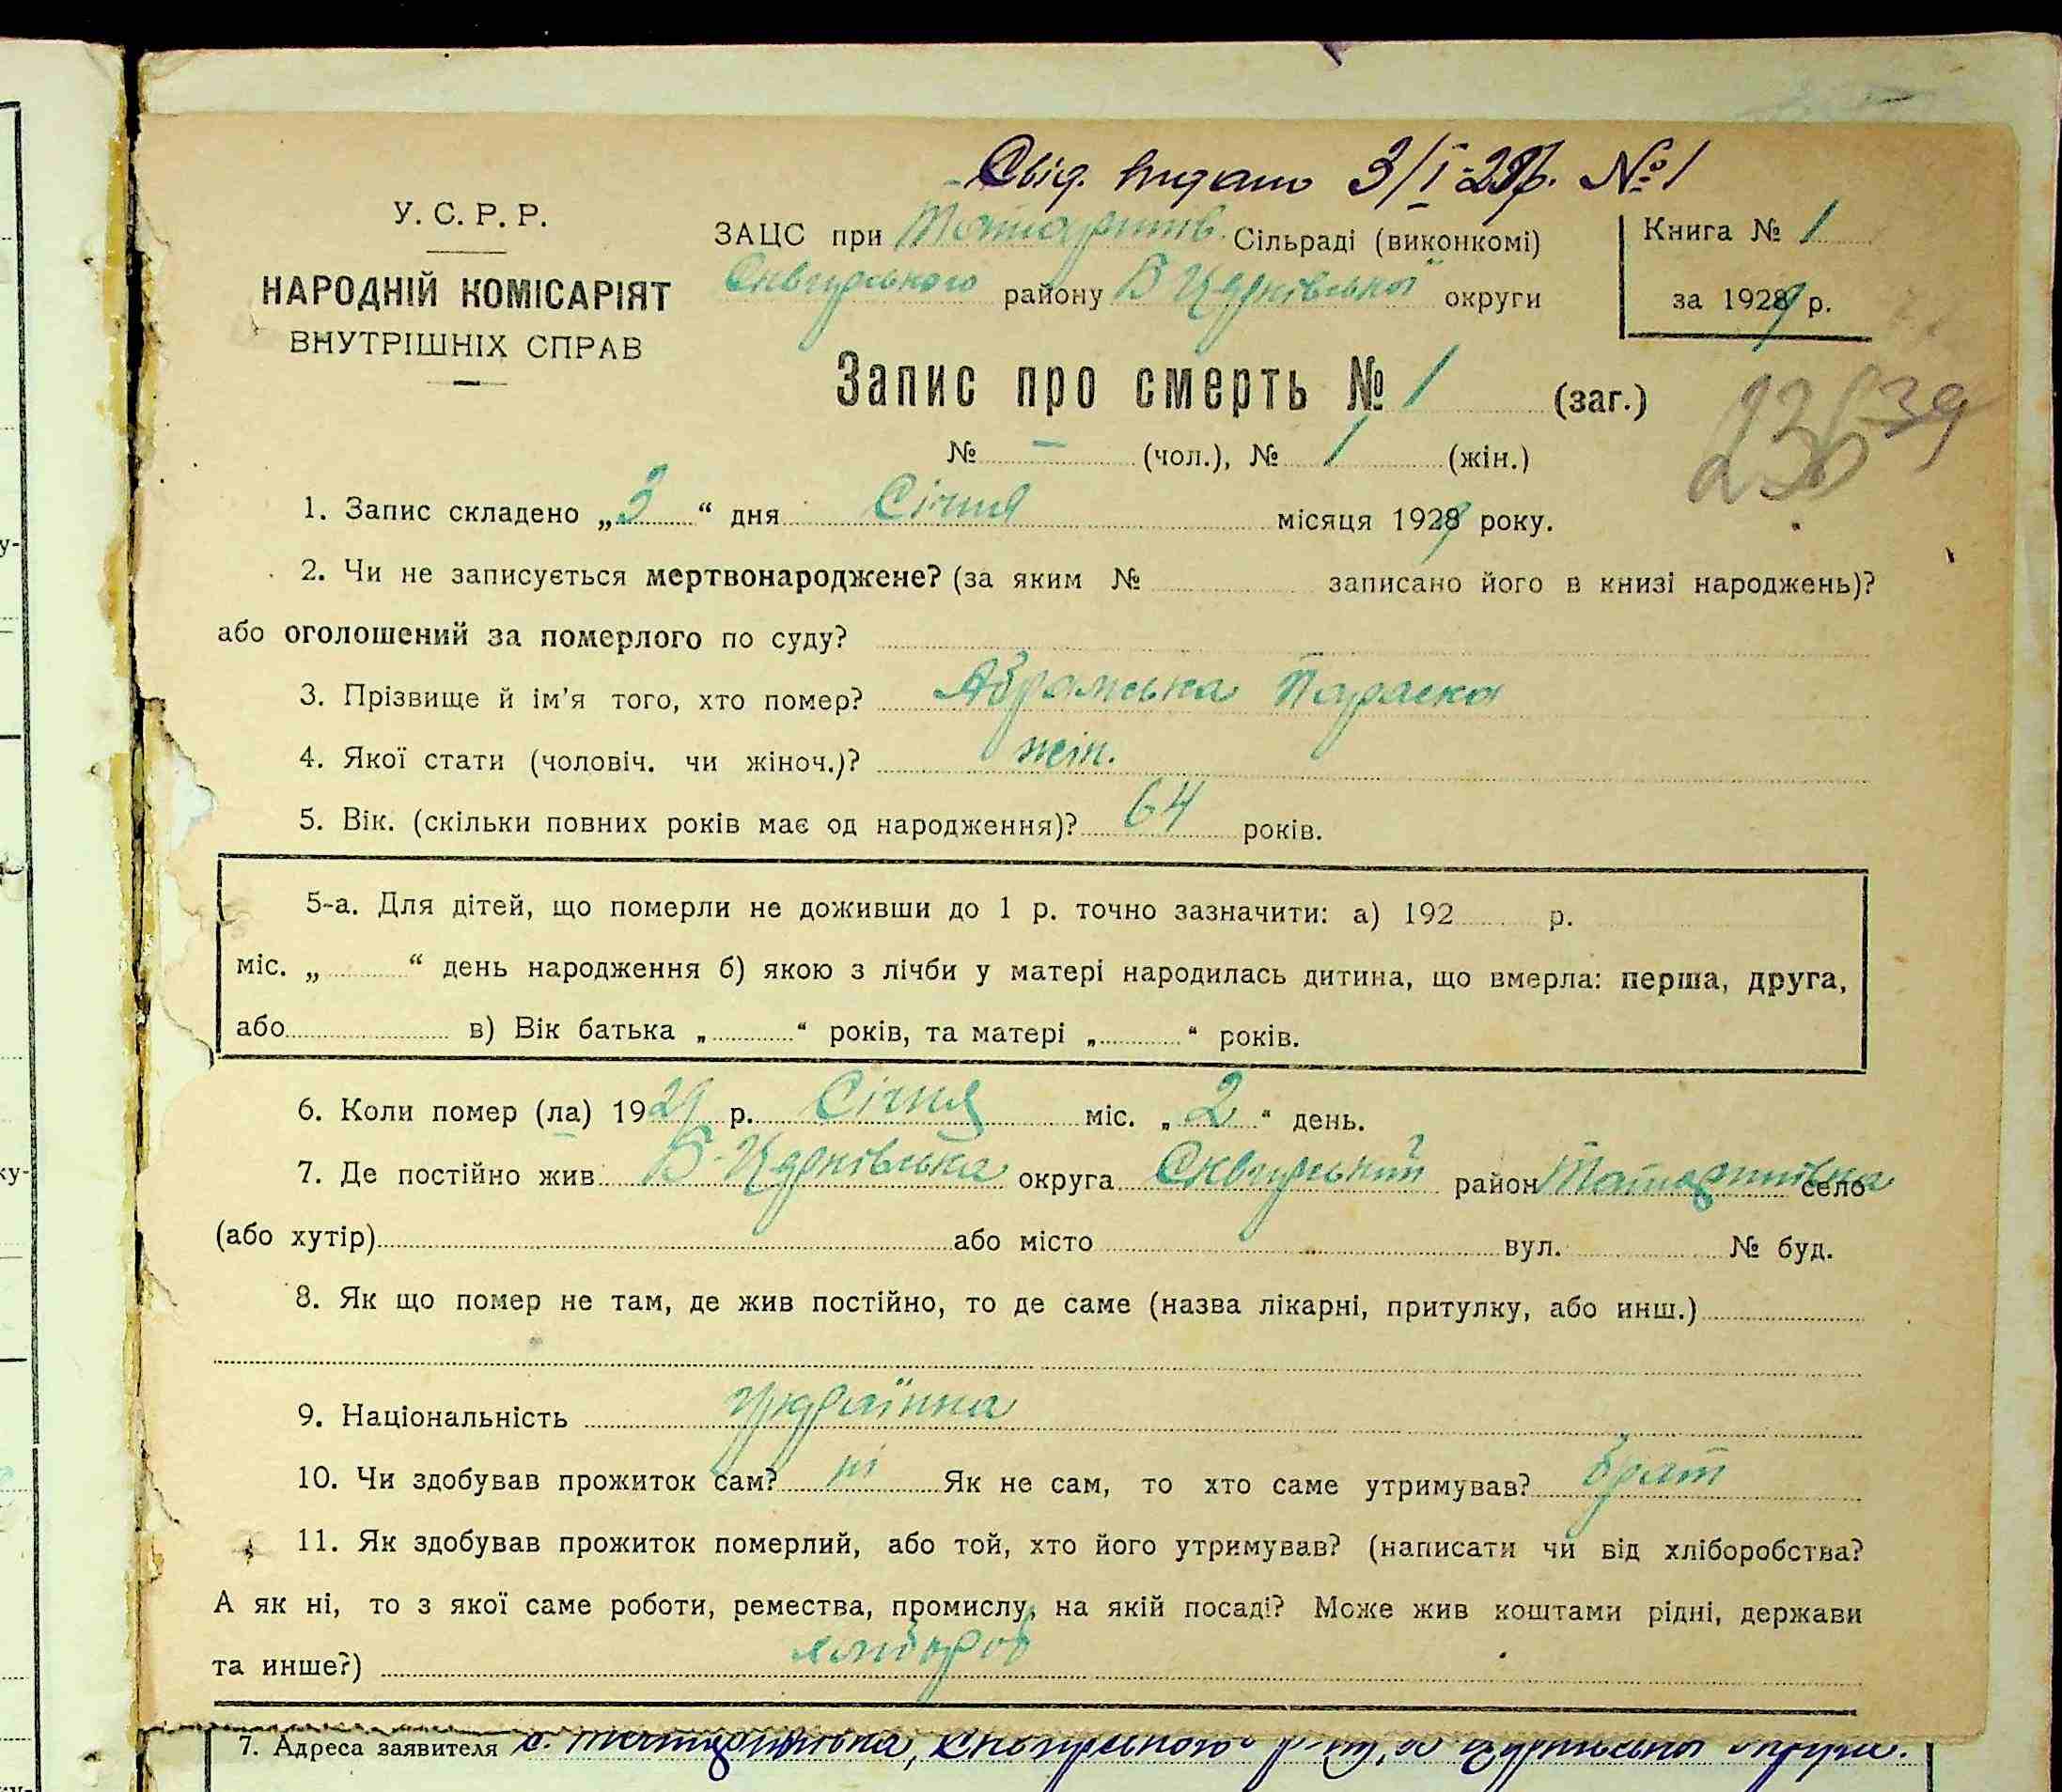 Свід. видано 3/I-29р. № 1
У. С. Р. Р.
НАРОДНІЙ КОМІСАРІЯТ
ВНУТРІШНІХ СПРАВ
ЗАЦС при Татаринів. Сільраді (виконкомі)
Сквирського району Б Церківської округи
Книга № 1
за 1929 р.
Запис про смерть № 1 (заг.)
№ — (чол.), № 1 (жін.)
1. Запис складено „3“ дня Січня місяця 1929 року.
2. Чи не записується мертвонароджене? (за яким № записано його в книзі народжень)?
або оголошений за померлого по суду?
3. Прізвище й ім'я того, хто помер? Абрамська Параска
4. Якої стати (чоловіч. чи жіноч.)? жін.
5. Вік. (скільки повних років має од народження)? 64 років.
5-а. Для дітей, що померли не доживши до 1 р. точно зазначити: а) 192 р.
міс. „ “ день народження б) якою з лічби у матері народилась дитина, що вмерла: перша, друга,
або в) Вік батька „ “ років, та матері „ “ років.
6. Коли помер (ла) 1929 р. Січня міс. „2“ день.
7. Де постійно жив Б-Церківська округа Сквирський район Татаринівка село
(або хутір) або місто вул. № буд.
8. Як що помер не там, де жив постійно, то де саме (назва лікарні, притулку, або инш.)
9. Національність українка
10. Чи здобував прожиток сам? ні Як не сам, то хто саме утримував? брат
11. Як здобував прожиток померлий, або той, хто його утримував? (написати чи від хліборобства?
А як ні, то з якої саме роботи, ремества, промислу, на якій посаді? Може жив коштами рідні, держави
та инше?) хлібороб
7. Адреса заявителя с. Татаринівка, Сквирського р-ну, Б Церківської округи.